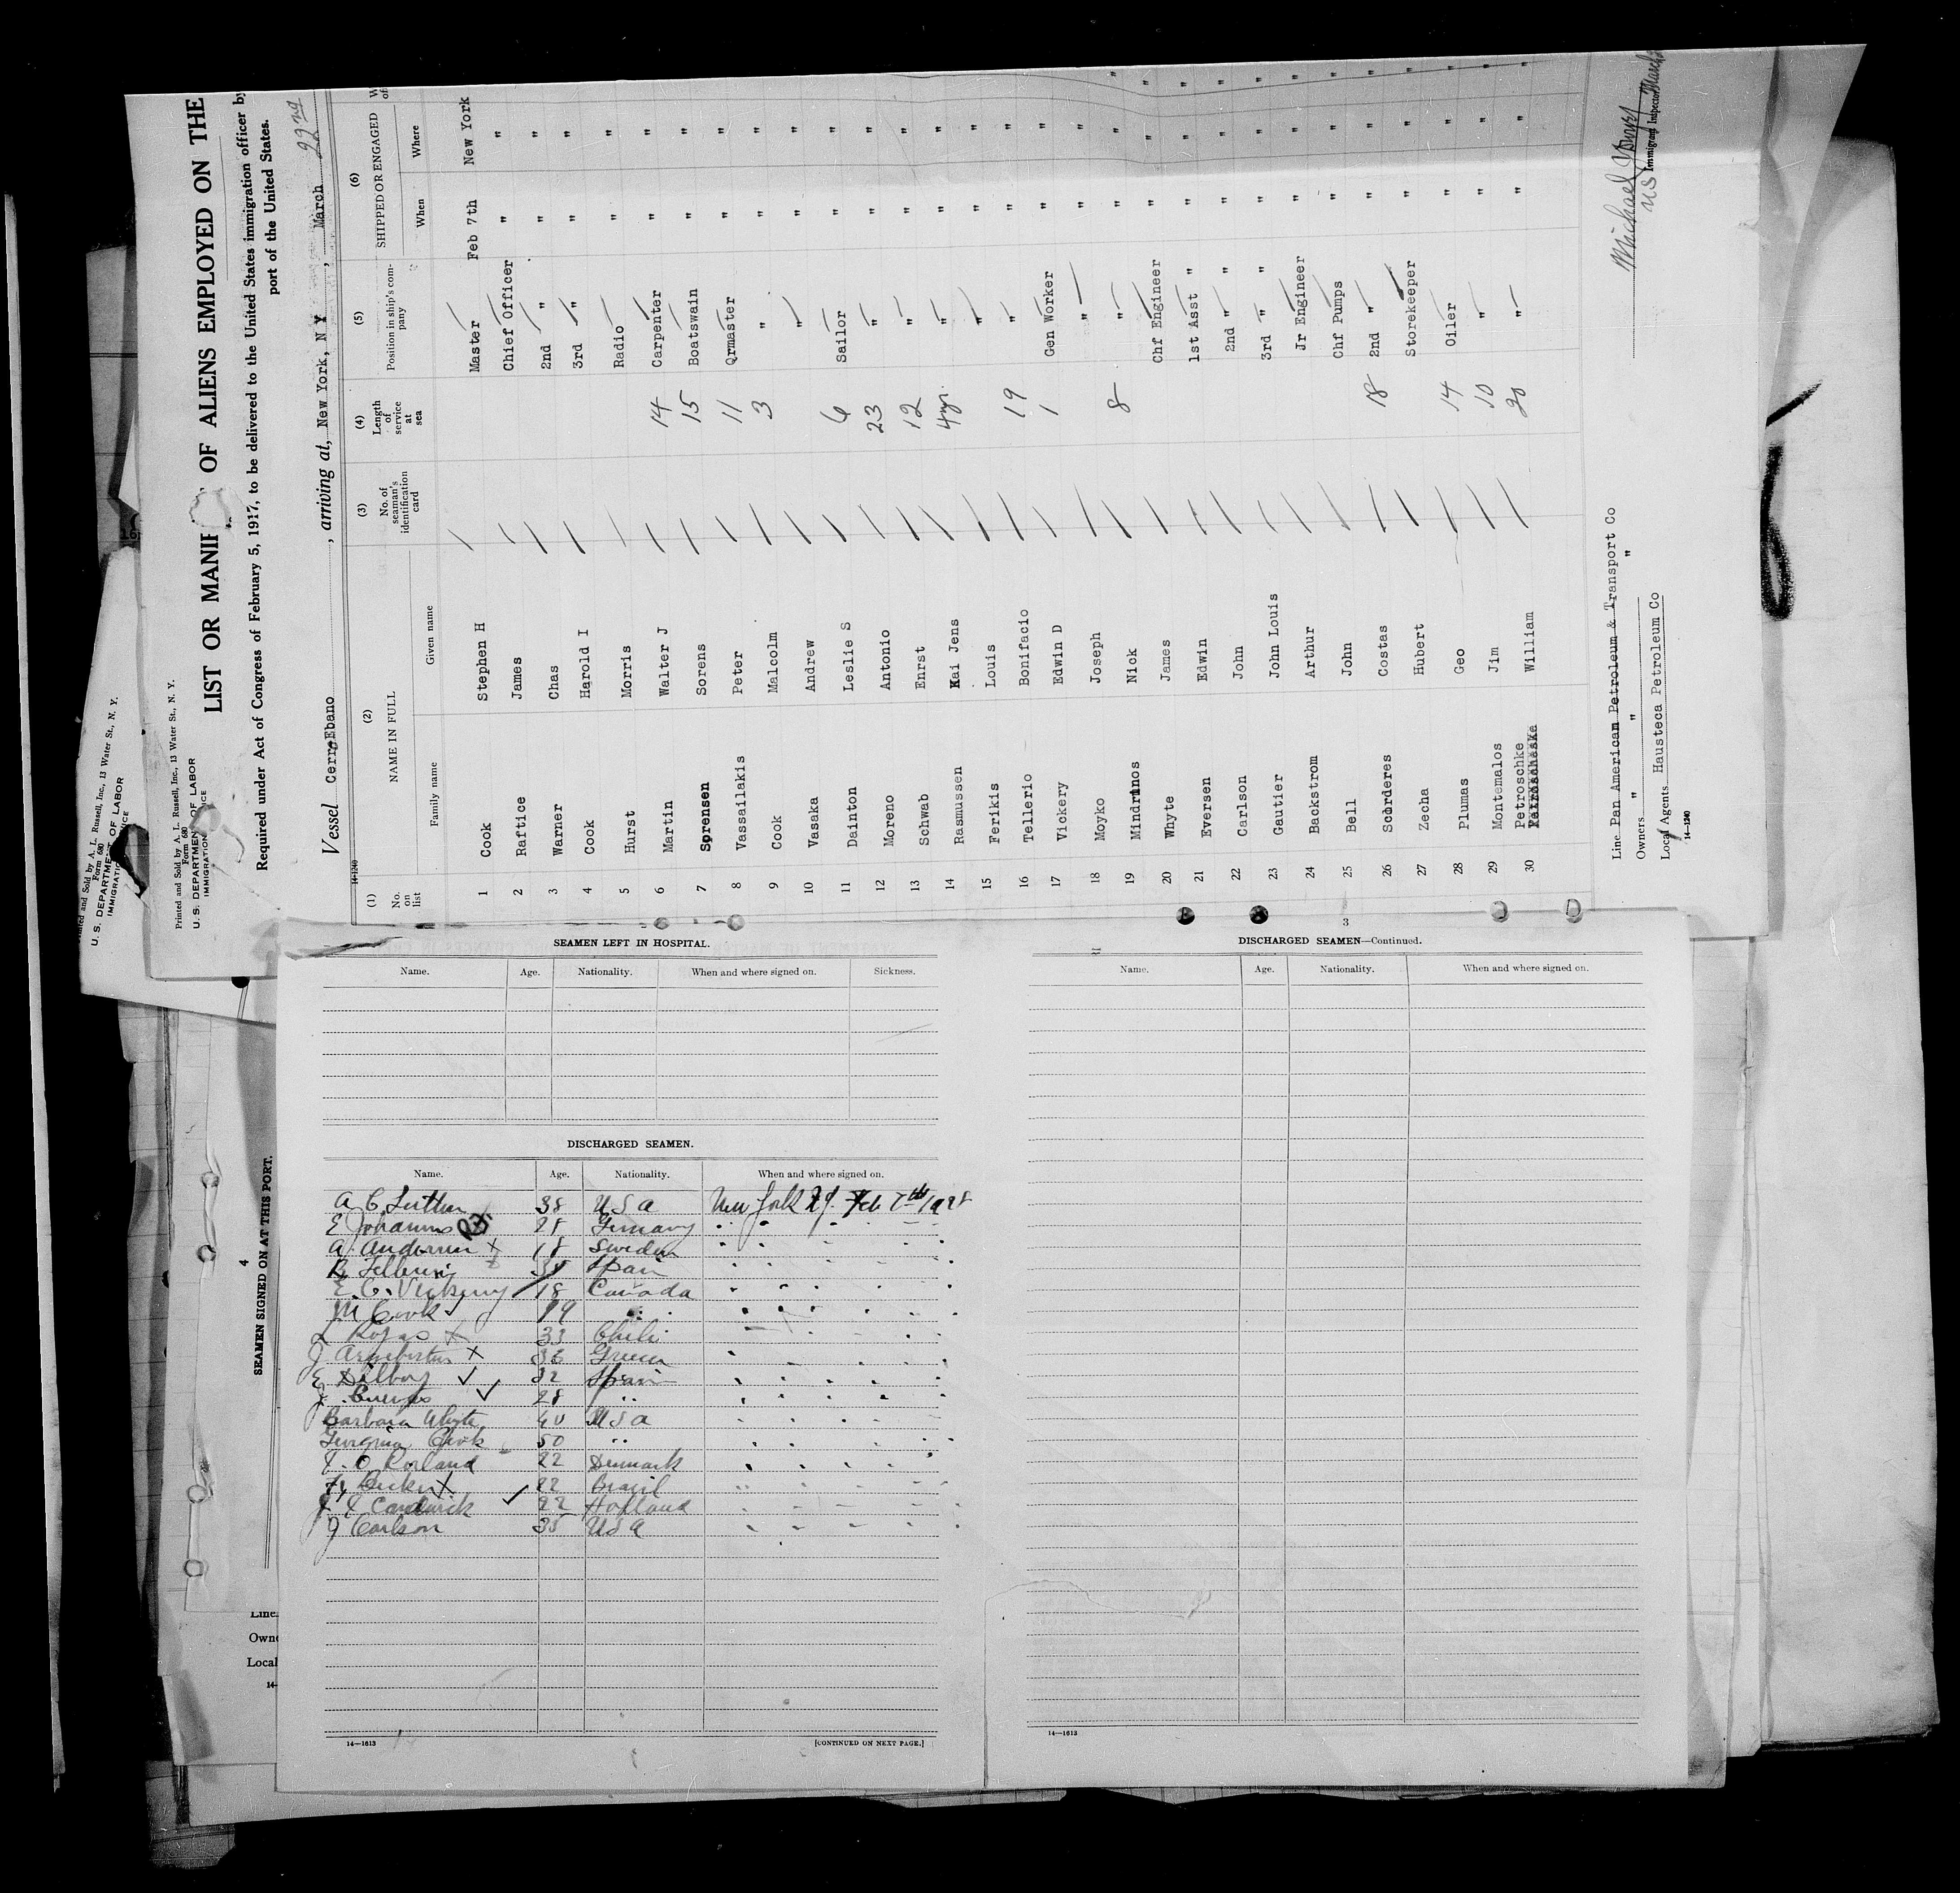 Printed and Sold by A. L. Russell, Inc., 13 Water St., N. Y.
Form 680
U. S. DEPARTMENT OF LABOR
LIST OR MANIF OF ALIENS EMPLOYED ON THE
Required under Act of Congress of February 5, 1917, to be delivered to the United States immigration officer by
port of the United States.
Vessel Cerro Ebano , arriving at, New York, N Y , March 22nd
(1) (2) (3) (4) (5) (6)
No. on list NAME IN FULL No. of seaman's identification card Length of service at sea Position in ship's company SHIPPED OR ENGAGED
Family name Given name When Where
1 Cook Stephen H Master Feb 7th New York
2 Raftice James Chief Officer " "
3 Warner Chas 2nd " " "
4 Cook Harold I 3rd " " "
5 Hurst Morris Radio " "
6 Martin Walter J 14 Carpenter " "
7 Sprensen Sorens 15 Boatswain " "
8 Vassailakis Peter 11 Qrmaster " "
9 Cook Malcolm 3 " " "
10 Vasaka Andrew " " "
11 Dainton Leslie S 6 Sailor " "
12 Moreno Antonio 23 " " "
13 Schwab Enrst 12 " " "
14 Rasmussen Kai Jens 4yr " " "
15 Ferikis Louis " " "
16 Tellerio Bonifacio 19 " " "
17 Vickery Edwin D 1 Gen Worker " "
18 Moyko Joseph " " "
19 Mindrinos Nick 8 " " "
20 Whyte James Chf Engineer " "
21 Eversen Edwin 1st Asst " " "
22 Carlson John 2nd " " " "
23 Gautier John Louis 3rd " " " "
24 Backstrom Arthur Jr Engineer " "
25 Bell John Chf Pumps " "
26 Scorderes Costas 18 2nd " " "
27 Zecha Hubert Storekeeper " "
28 Plumas Geo 14 Oiler " "
29 Montemalos Jim 10 " " "
30 Petroschke William 20 " " "
Line Pan American Petroleum & Transport Co
Owners " " "
Local Agents Hausteca Petroleum Co
14-1240
Michael
US Immigrant Inspector March
Printed and Sold by A. L. Russell, Inc., 13 Water St., N. Y.
Form 680
U. S. DEPARTMENT OF LABOR
4
SEAMEN SIGNED ON AT THIS PORT.
Line
Owne
Local
14-
3
SEAMEN LEFT IN HOSPITAL.
Name. Age. Nationality. When and where signed on. Sickness.
DISCHARGED SEAMEN.
Name. Age. Nationality. When and where signed on.
A C Luther 38 USA New York NY. Feb 7th 1928
E Johannes 28 Germany
A. Anderson x 18 Sweden
B Tellerio 35 Spain
E. C. Vickery 18 Canada
M Cook 19 "
L Rojas x 33 Chili
J x 36 Greece
E ✓ 32 Spain
✓ 28 "
Barbara Whyte 40 USA
Georgina Cook 50 "
Rorland 22 Denmark
Becker x 22 Brazil
✓ 22 Holland
J Carlson 35 USA
14—1613 [CONTINUED ON NEXT PAGE.]
DISCHARGED SEAMEN—Continued.
Name. Age. Nationality. When and where signed on.
14—1613